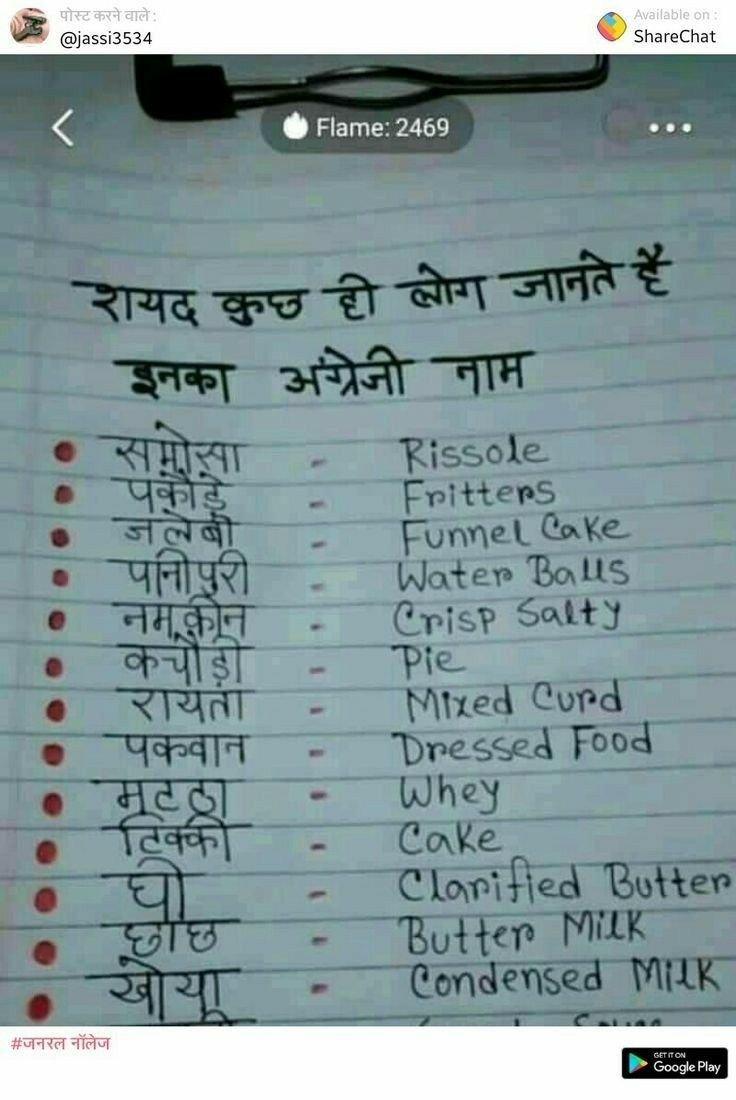 पोस्ट करने वाले :
@jassi3534
Available on :
ShareChat
Flame: 2469
शायद कुछ ही लोग जानते है
इनका अंग्रेजी नाम
समोसा - Rissole
पकौड़े - Fritters
जलेबी - Funnel Cake
पानीपुरी - Water Balls
नमकीन - Crisp Salty
कचौड़ी - Pie
रायता - Mixed Curd
पकवान - Dressed Food
मटठा - Whey
टिक्की - Cake
घी - Clarified Butter
छाछ - Butter Milk
खोया - Condensed Milk
#जनरल नॉलेज
GET IT ON
Google Play